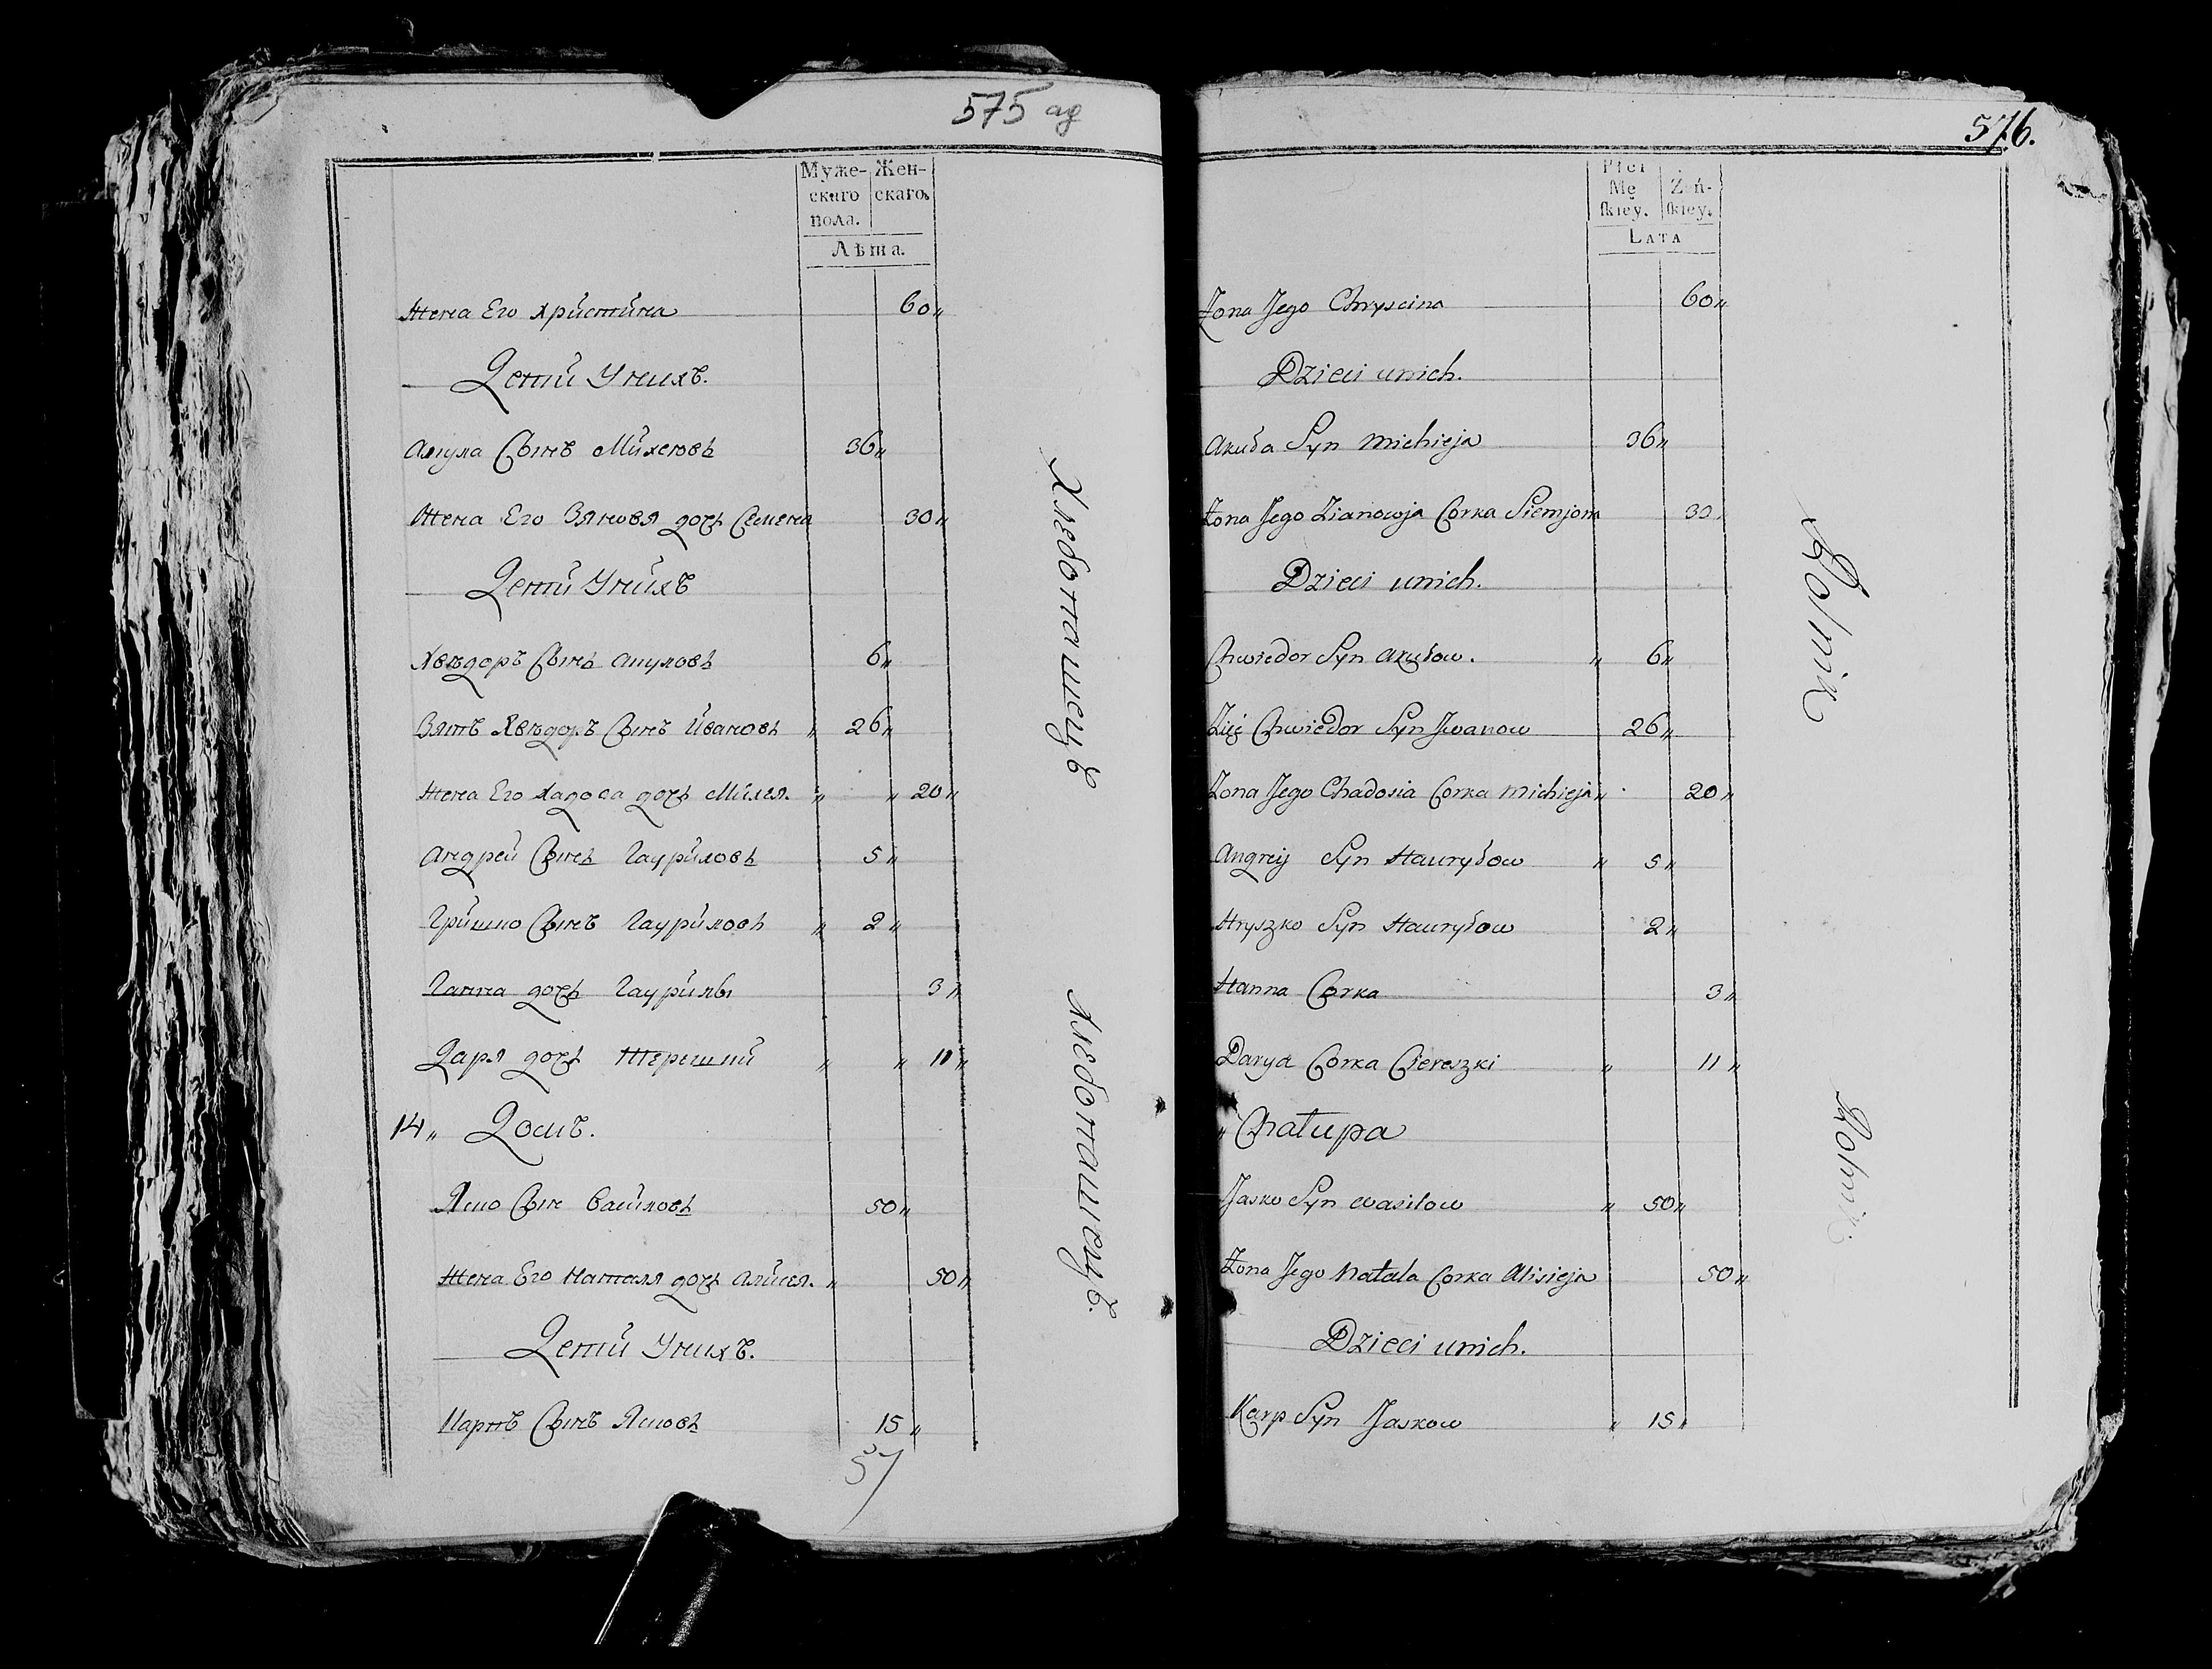 575 ад
Муже-скаго пола. Жен-скаго.
Лѣта.
Жена Его Христина 60„
Дети Унихъ.
Акула Сынъ Михеювъ 36„
Жена Его Зяновя дочь Семена 30„
Дети Унихъ
Хвѣдоръ Сынъ Акуловъ 6„
Зять Хвѣдоръ Сынъ Ивановъ „ 26„
Жена Его Хадоса дочь Михея. „ „ 20„
Андрей Сынъ Гауриловъ 5„
Гришко Сынъ Гауриловъ „ 2„
Ганна дочь Гаурилы 3„
Даря дочь Терешки „ „ 11„
14„ Домъ.
Яско Сын Василовъ 50„
Жена Его Наталя дочь Алисея. „ 50„
Дети Унихъ.
Карпъ Сынъ Ясковъ 15„
57
Хлебопашецъ
Хлебопашецъ.
576.
Płci Męskiey. Żeńskiey.
Lata
Żona Jego Chryscina 60„
Dzieci unich.
Akuła Syn Michieja 36„
Żona Jego Zianowja Corka Siemjona 30„
Dzieci unich.
Chwiedor Syn Akułow. „ 6„
Zięć Chwiedor Syn Jwanow 26„
Żona Jego Chadosia Corka Michieja „ 20„
Angreiy Syn Hauryłow „ 5„
Hryszko Syn Hauryłow 2„
Hanna Corka 3„
Darya Corka Ciereszki „ 11„
„ Chałupa
Jasko Syn Wasilow „ 50„
Żona Jego Natala Corka Alisieja 50„
Dzieci unich.
Karp Syn Jaskow „ 15„
Rolnik
Rolnik